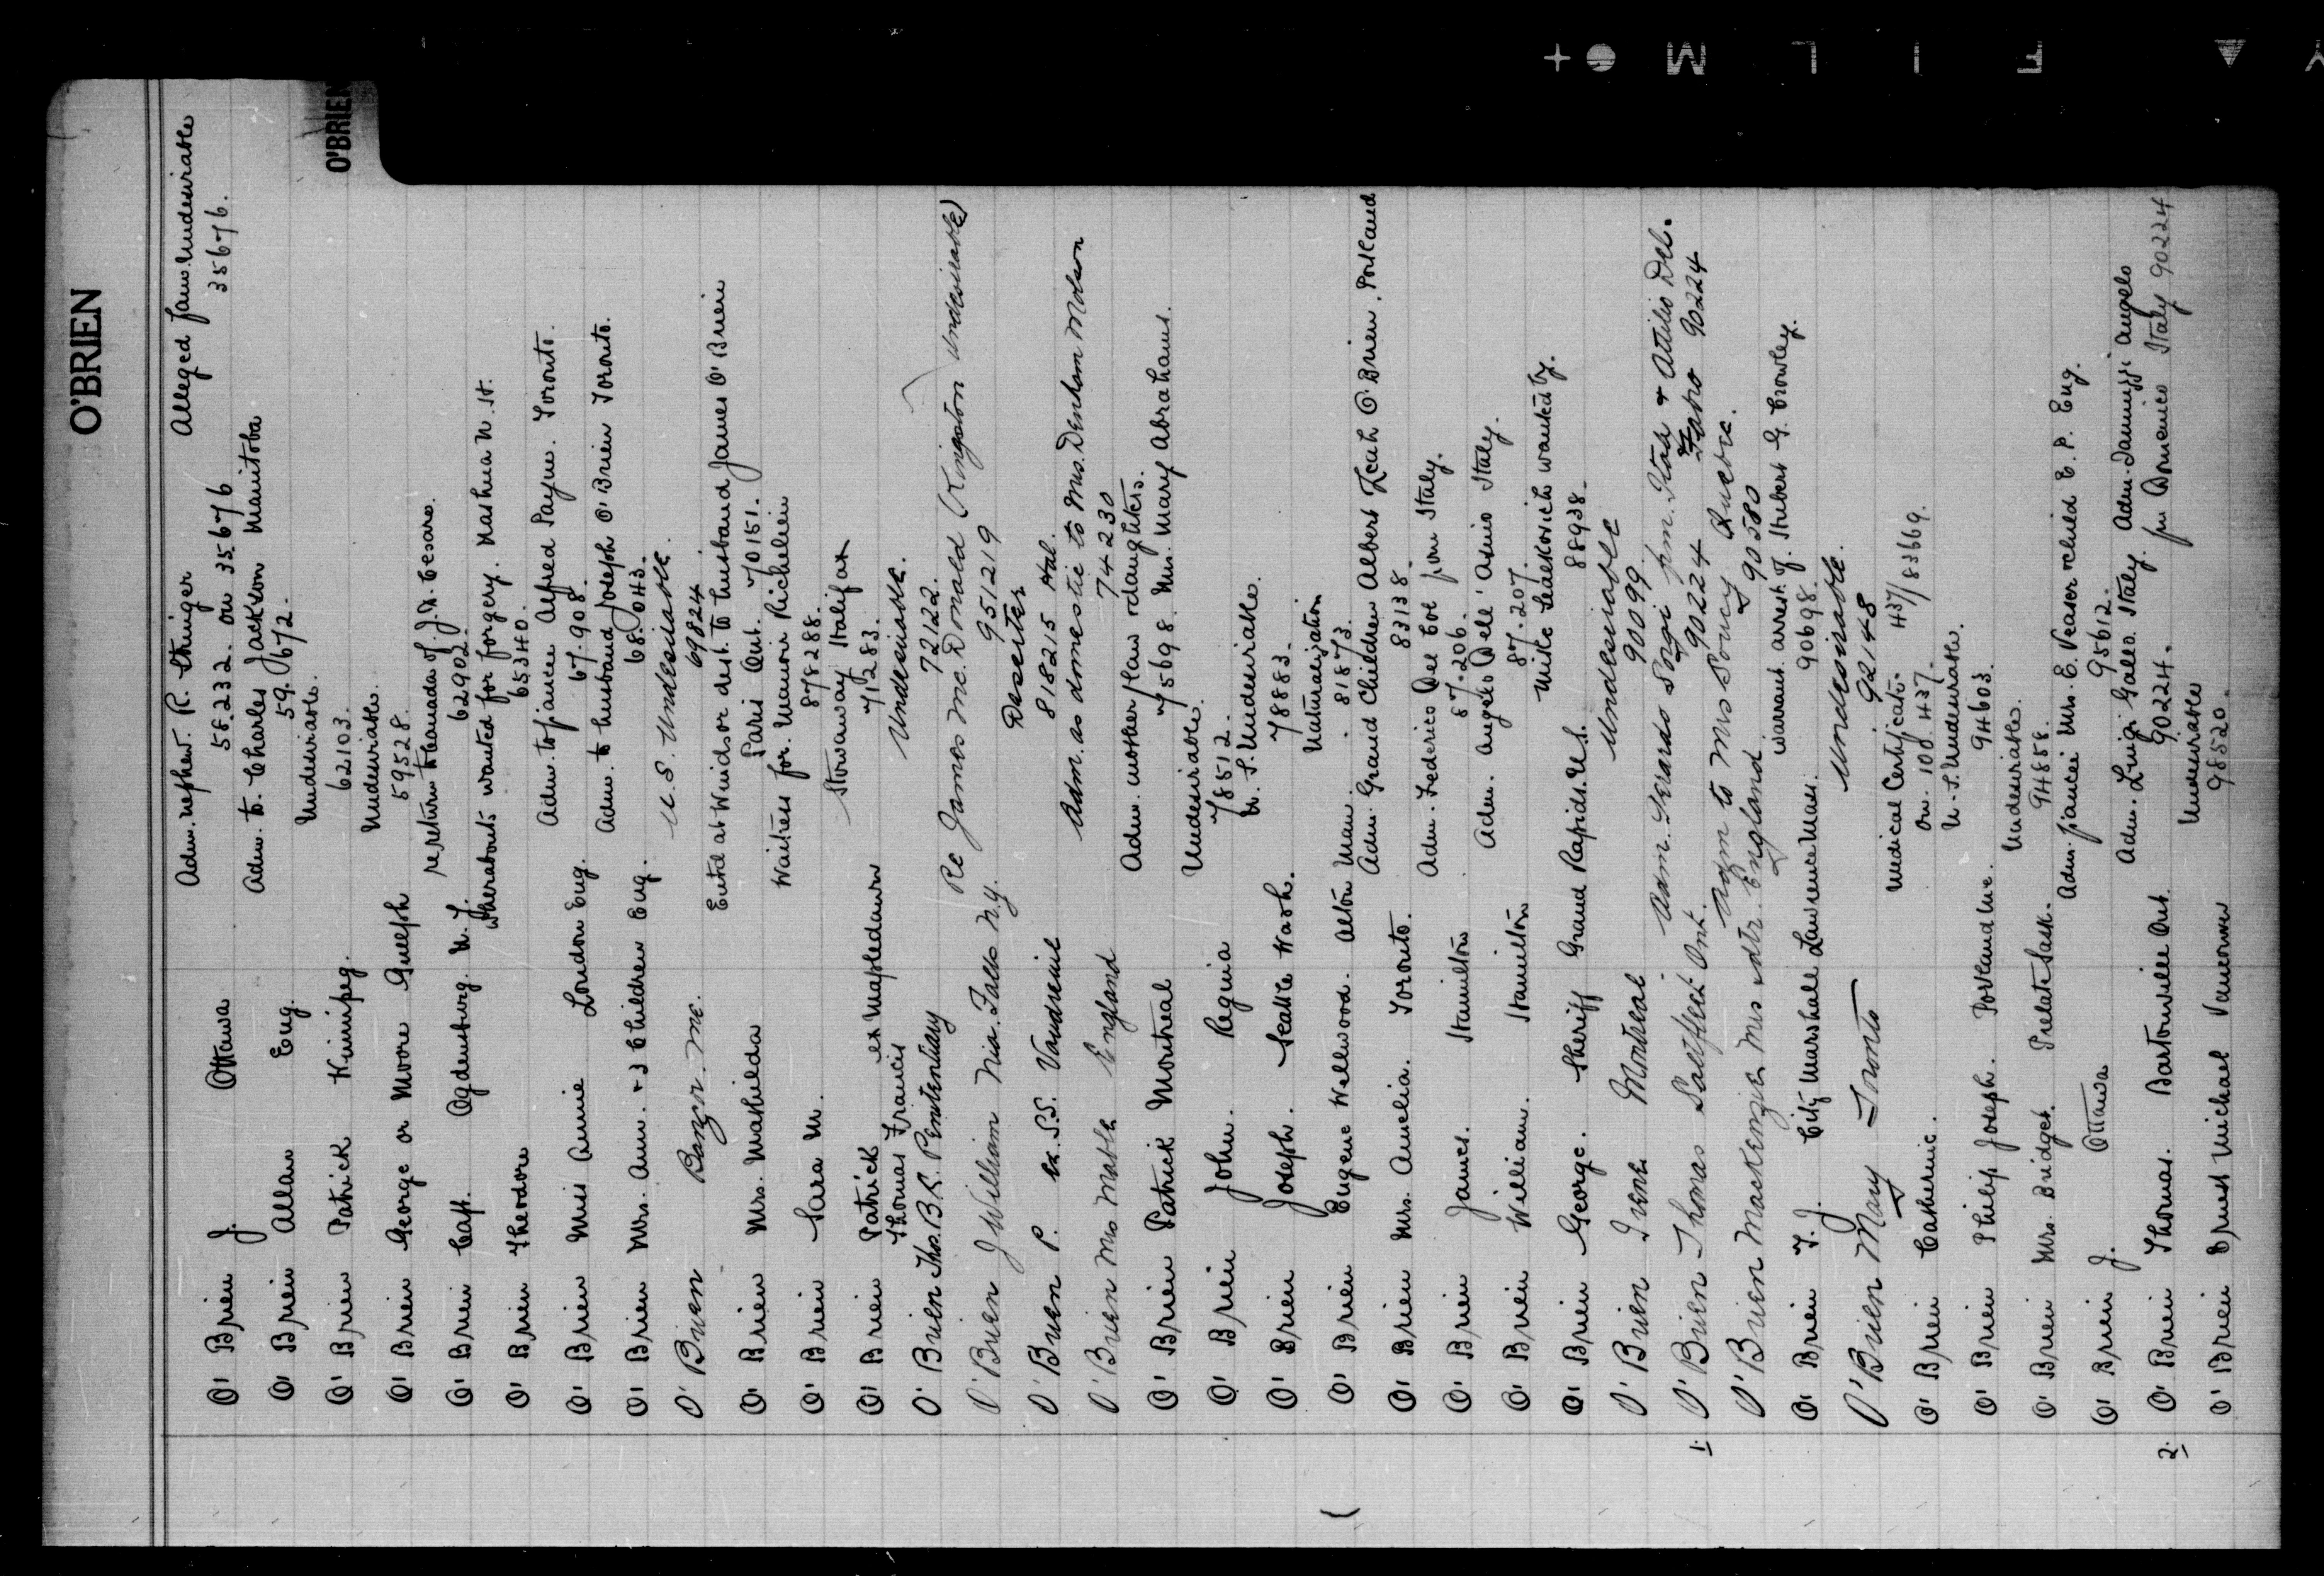 O'BRIEN
O'BRIEN
Adm. nephew. R. Stringer Alleged fam. Undesirable
O' Brien J. Ottawa 58.232. on 35676 35676.
Adm. to. Charles Jackson Manitoba
O' Brien Allan Eng. 59.672.
Undesirable.
O' Brien Patrick Winnipeg. 62103.
Undesirable.
O' Brien George or Moore Guelph 59528.
re return to Canada of J.N. Cesaro.
O' Brien Capt. Ogdensburg. N.Y. 62902.
Whereabouts wanted for forgery. Nashua N.H.
O' Brien Theodore 65340.
Adm. to fiancee Alfred Payne. Toronto.
O' Brien Miss Annie London Eng. 67.908.
Adm. to husband Joseph O'Brien Toronto.
O' Brien Mrs. Ann. + 3 Children Eng. 68.043.
U.S. Undesirable.
O' Brien Bangor. Me. 69824
Entd at Windsor dest. to husband James O'Brien
O' Brien Mrs. Mathilda Paris Ont. 70151.
Waitress for Manoir Richelieu
O' Brien Sara M. 878288.
Stowaway Halifax
O' Brien Patrick ex Mapledawn 71283.
Thomas Francis Undesirable.
O' Brien Thos. B.C. Penitentiary 72122.
Re James McDonald (Kingston Undesirable)
O' Brien J William Nia. Falls N.Y. 951219
Deserter
O' Brien P. ex. S.S. Vaudreuil 818215 Hal.
Adm. as domestic to Mrs. Denham Molson
O' Brien Mrs Mable England 74230
Adm. mother in law + daughters.
O' Brien Patrick Montreal 75698. Mrs. Mary Abrahams.
Undesirable.
O' Brien John. Regina 78512.
U.S. Undesirable.
O' Brien Joseph. Seattle Wash. 78883.
Naturalization
O' Brien Eugene Wellwood. Alton Man. 81873.
Adm. Grand Children Albert Leah O'Brien. Portland
O' Brien Mrs. Amelia. Toronto. 83138.
Adm. Federico Del Col from Italy.
O' Brien James. Hamilton 87.206.
Adm. Angelo Dell' Asino Italy.
O' Brien William. Hamilton 87.207.
Mike Leakovich wanted by.
O' Brien George. Sheriff Grand Rapids. U.S. 88938.
Undesirable
O' Brien Irene Montreal 90099.
Adm. Gerardo Sorgi fm. Italy & Attilio Del.
1. O' Brien Thomas Saltfleet Ont. 90224 Fabro 90224
Adm to Mrs Soucy Quebec.
O' Brien Mackenzie Mrs + dtr. England 90580
warrant arrest of. Hubert G. Crowley.
O' Brien T.J. City Marshall Lawrence Mass. 90698.
Undesirable.
O' Brien Mary Toronto 92148
Medical Certificate. 437/83669.
O' Brien Catherine. on. 10d. 437.
U.S. Undesirable.
O' Brien Philip Joseph. Portland Me. 94603.
Undesirable.
O' Brien Mrs. Bridget. Prelate Sask. 94858.
Adm. fiancee Mrs. E. Veaser + child E.P. Eng.
O' Brien J. Ottawa 95612.
Adm. Luigi Gallo. Italy. Adm. Iannuzzi Angelo
2. O' Brien Thomas. Bartonville Ont. 90224. fm Domenico Italy 90224
Undesirable
O' Brien Ernest Michael Vancouver 98520.
F I L M